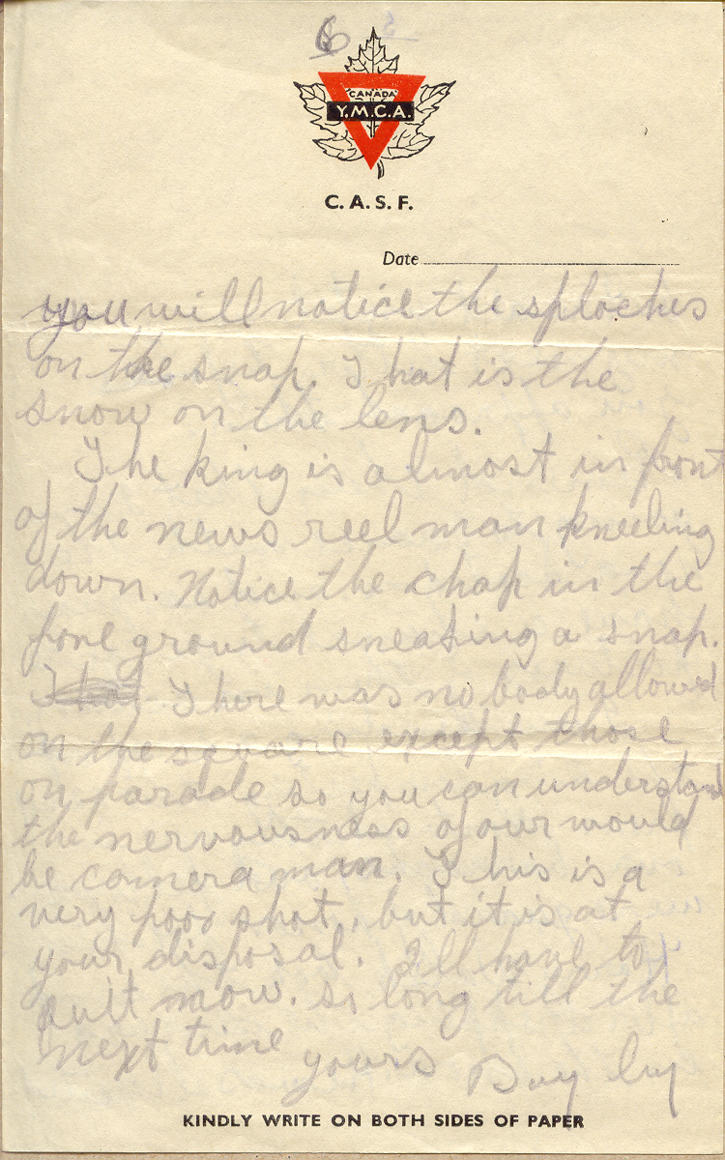 6
CANADA
Y.M.C.A.
C. A. S. F.
Date
you will notice the sploches
on the snap. That is the
snow on the lens.
The king is almost in front
of the news reel man kneeling
down. Notice the chap in the
fore ground sneaking a snap.
There was no body allowed
on the square except those
on parade so you can understand
the nervousness of our would
be camera man. This is a
very poor shot, but it is at
your disposal. I'll have to
quit now. so long till the
next time yours
KINDLY WRITE ON BOTH SIDES OF PAPER